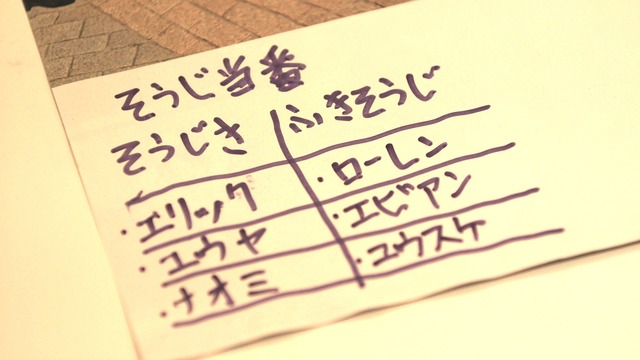 そうじ当番
そうじき ふきそうじ
・エリック ・ローレン
・ユウヤ ・エビアン
・ナオミ ・ユウスケ